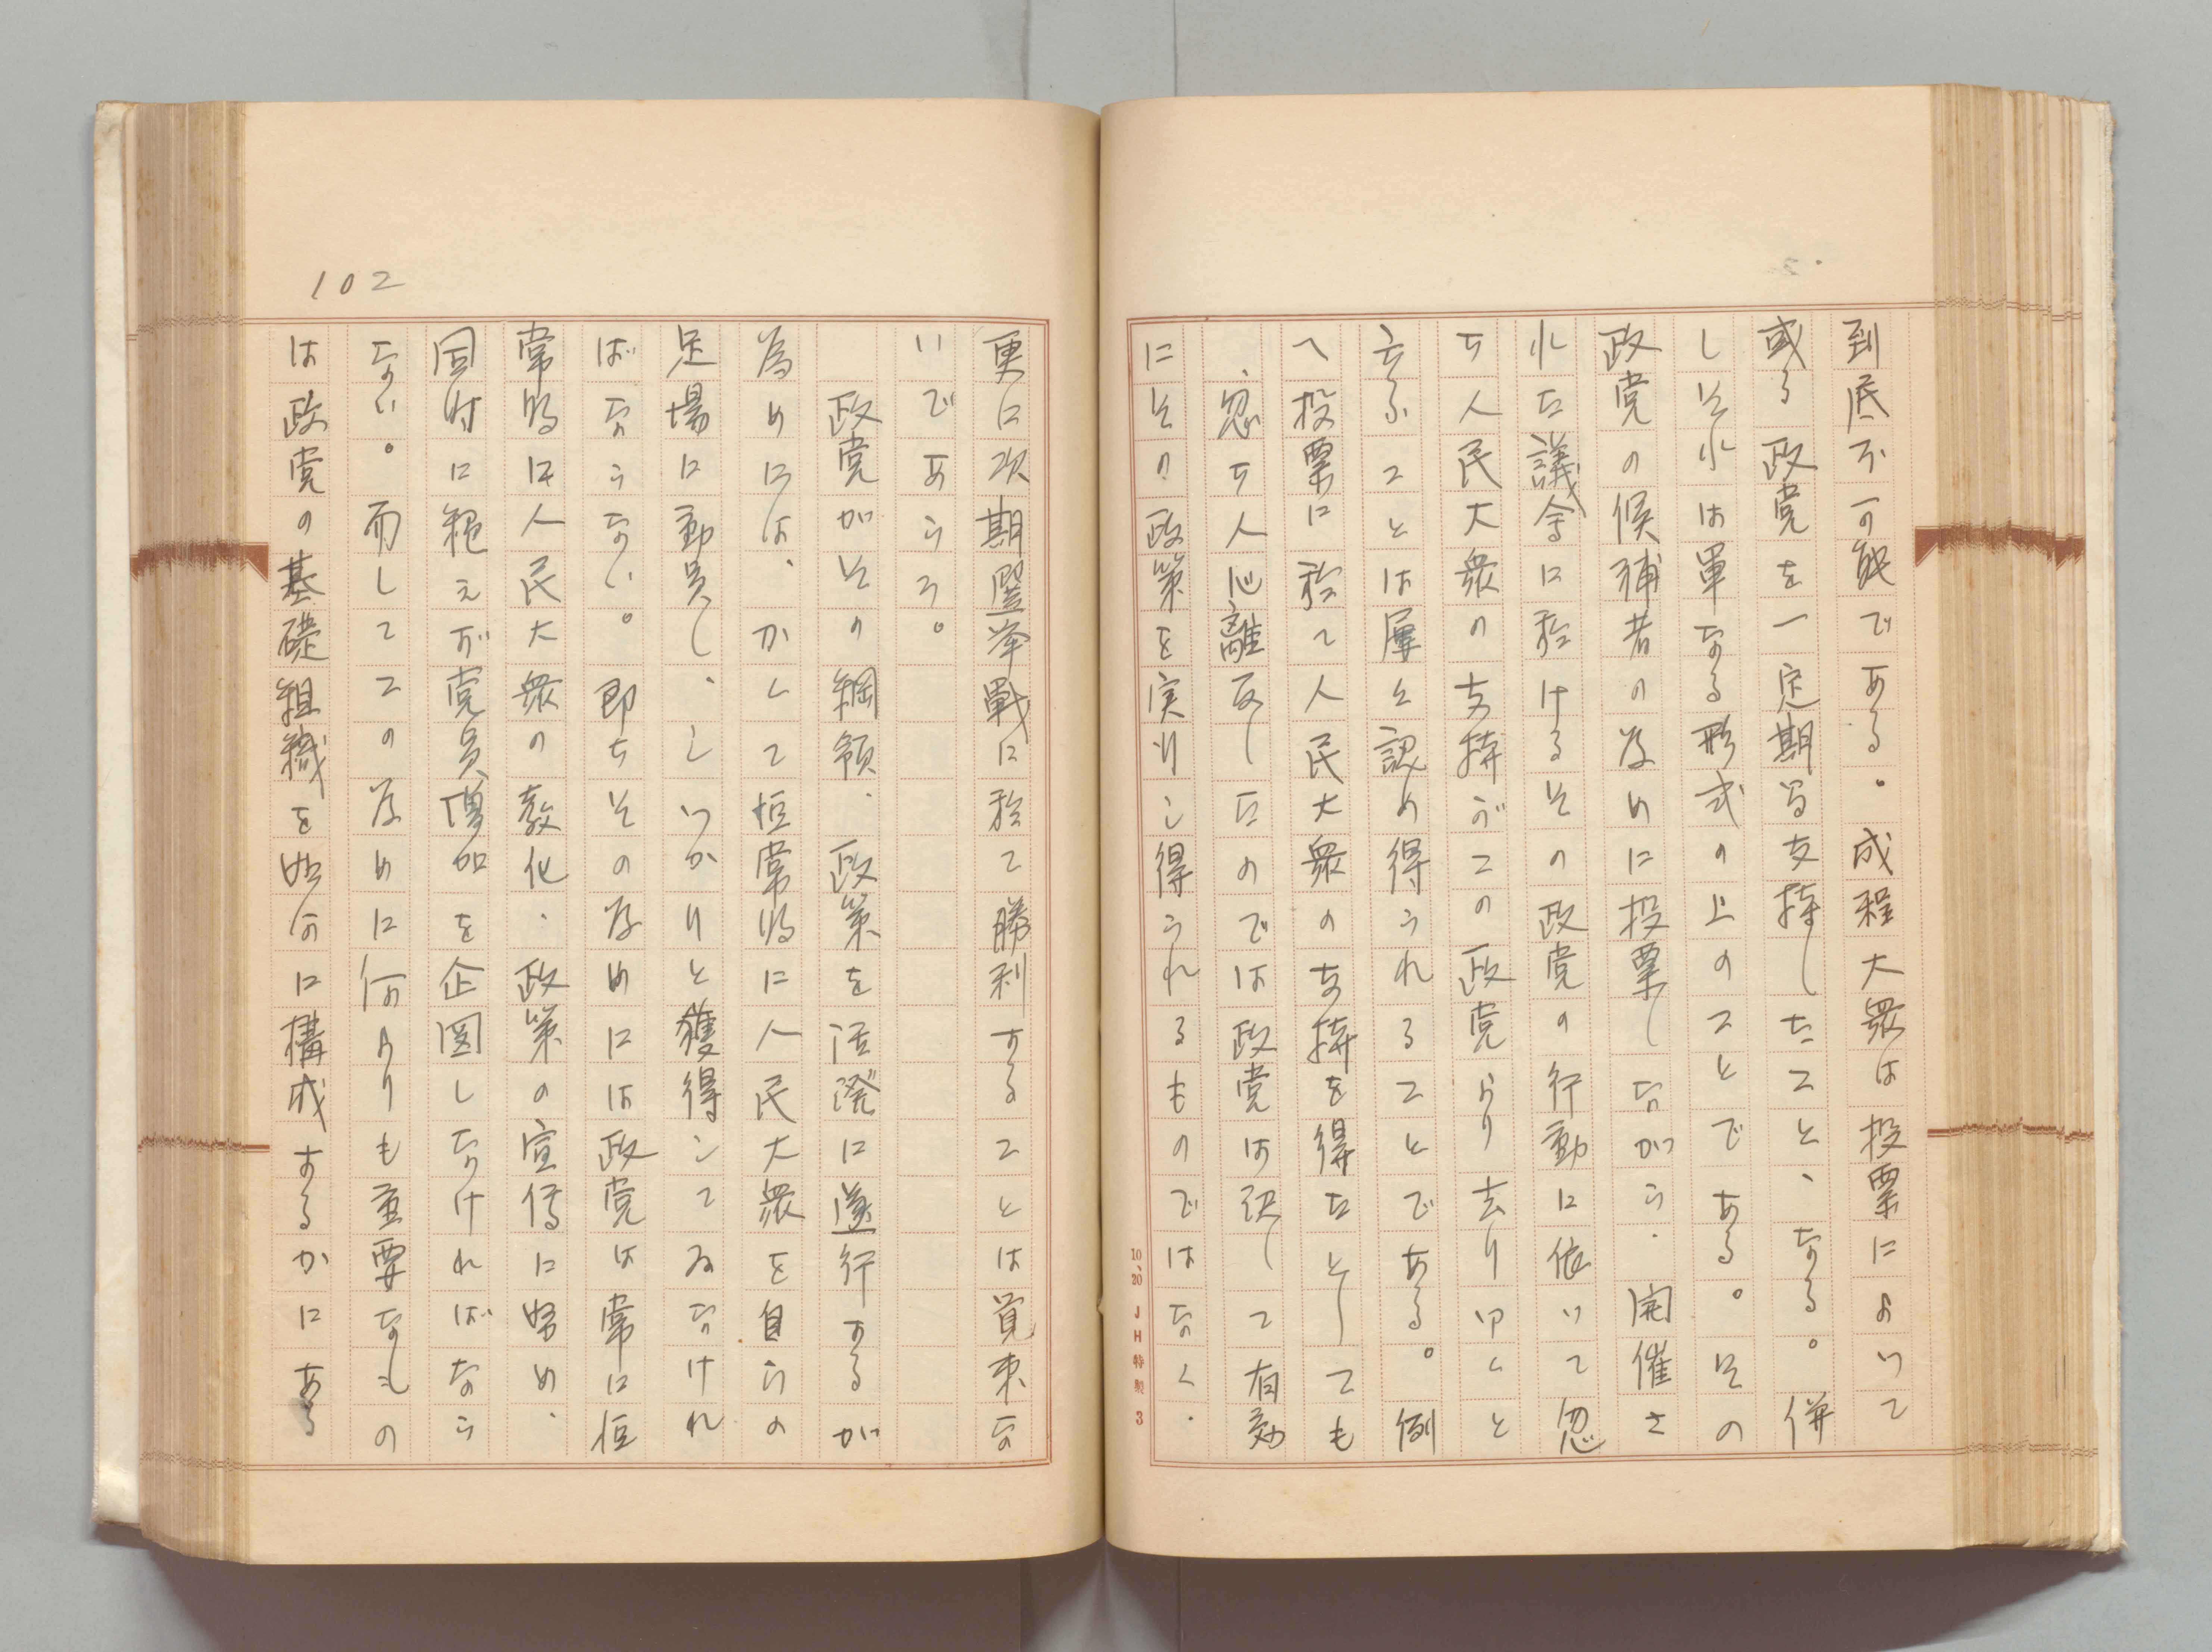 到底不可能である。成程大衆は投票によって
或る政党を一定期間支持したこと、なる。併
しそれは単なる形式の上のことである。その
政党の候補者の為めに投票しながら、開催さ
れた議会に於けるその政党の行動に依いて忽
ち人民大衆の支持がこの政党より去りゆくと
云ふことは屡々認め得られることである。例
へ投票に於て人民大衆の支持を得たとしても
、忽ち人心離反したのでは政党は決して有効
にその政策を実行し得られるものではなく、
10.20 JH特製 3
102
更に次期選挙戦に於て勝利することは覚束な
いであらう。
政党がその綱領、政策を活溌に遂行するが
為めには、かくて恒常的に人民大衆を自らの
足場に動員し、しつかりと獲得してゐなけれ
ばならない。即ちその為めには政党は常に恒
常的に人民大衆の教化、政策の宣伝に努め、
同時に絶えず党員増加を企図しなければなら
ない。而してこの為めに何よりも重要なもの
は政党の基礎組織を如何に構成するかにある